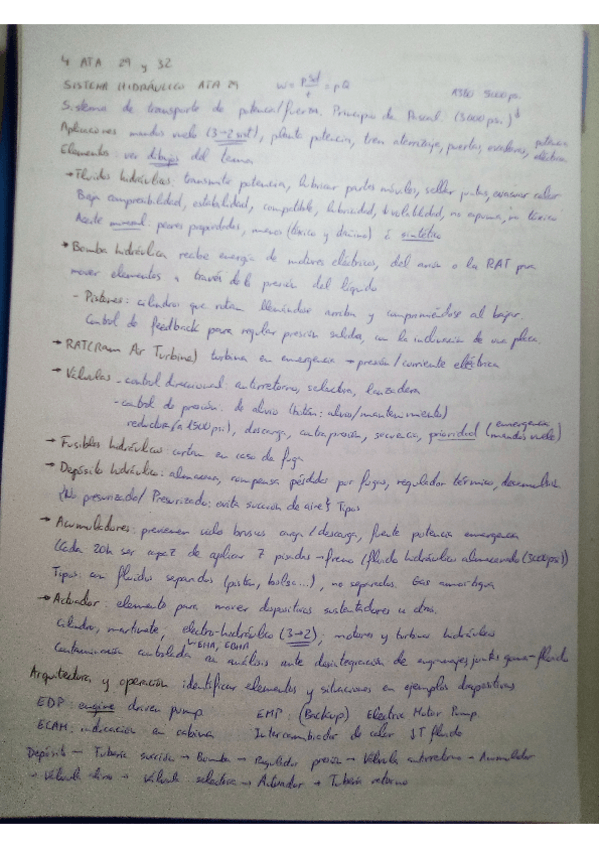 4 ATA 29 y 32
SISTEMA HIDRÁULICO ATA 29 W = = pQ A380 5000 psi
Sistema de transporte de potencia/fuerza. Principio de Pascal. (3000 psi)
Aplicaciones mandos vuelo (3→2 sist), planta potencia, tren aterrizaje, puertas, potencia eléctrica
Elementos: ver dibujos del tema
→ Fluidos hidráulicos: transmite potencia, lubricar partes móviles, sellar juntas, calor
Baja compresibilidad, estabilidad, compatible, lubricidad, volatilidad, no espuma, no tóxico
Aceite mineral: peores propiedades, menos (tóxico y dañino) sintético
→ Bomba hidráulica recibe energía de motores eléctricos, del avión o la RAT para
mover elementos a través de la presión del líquido
- Pistones: cilindros que rotan llenándose arriba y comprimiéndose al bajar.
Control de feedback para regular presión salida, con la inclinación de una placa
→ RAT (Ram Air Turbine) turbina en emergencia → presión/corriente eléctrica
→ Válvulas - control direccional: antirretorno, selectora, lanzadera
- control de presión: de alivio (alivio/mantenimiento)
reductora (a 1500 psi), descarga, contrapresión, secuencia, prioridad (emergencia mandos vuelo)
→ Fusibles hidráulicos: cortan en caso de fuga
→ Depósito hidráulico: almacena, compensa pérdidas por fugas, regulador térmico,
{No presurizado/Presurizado: evita succión de aire} Tipos
→ Acumuladores: previenen ciclo brusco carga/descarga, fuente potencia emergencia
Cada 20h ser capaz de aplicar 7 pisadas → freno (fluido hidráulico almacenado (3000 psi))
Tipos: con fluidos separados (pistón, bolsa...), no separados. Gas amortigua
→ Actuador: elemento para mover dispositivos sustentadores u otros.
cilindro, martinete, electro-hidráulico (3→2); motores y turbinas hidráulico
↳ EHA, EBHA
Contaminación controlada análisis ante desintegración de engranajes, juntas goma-fluido
Arquitectura y operación identificar elementos y situaciones en ejemplos diapositivas
EDP: engine driven pump EMP: (Backup) Electric Motor Pump.
ECAM: indicación en cabina Intercambiador de calor ↓T fluido
Depósito → Tubería succión → Bomba → Regulador presión → Válvula antirretorno → Acumulador
→ Válvula alivio → Válvula selectora → Actuador → Tubería retorno